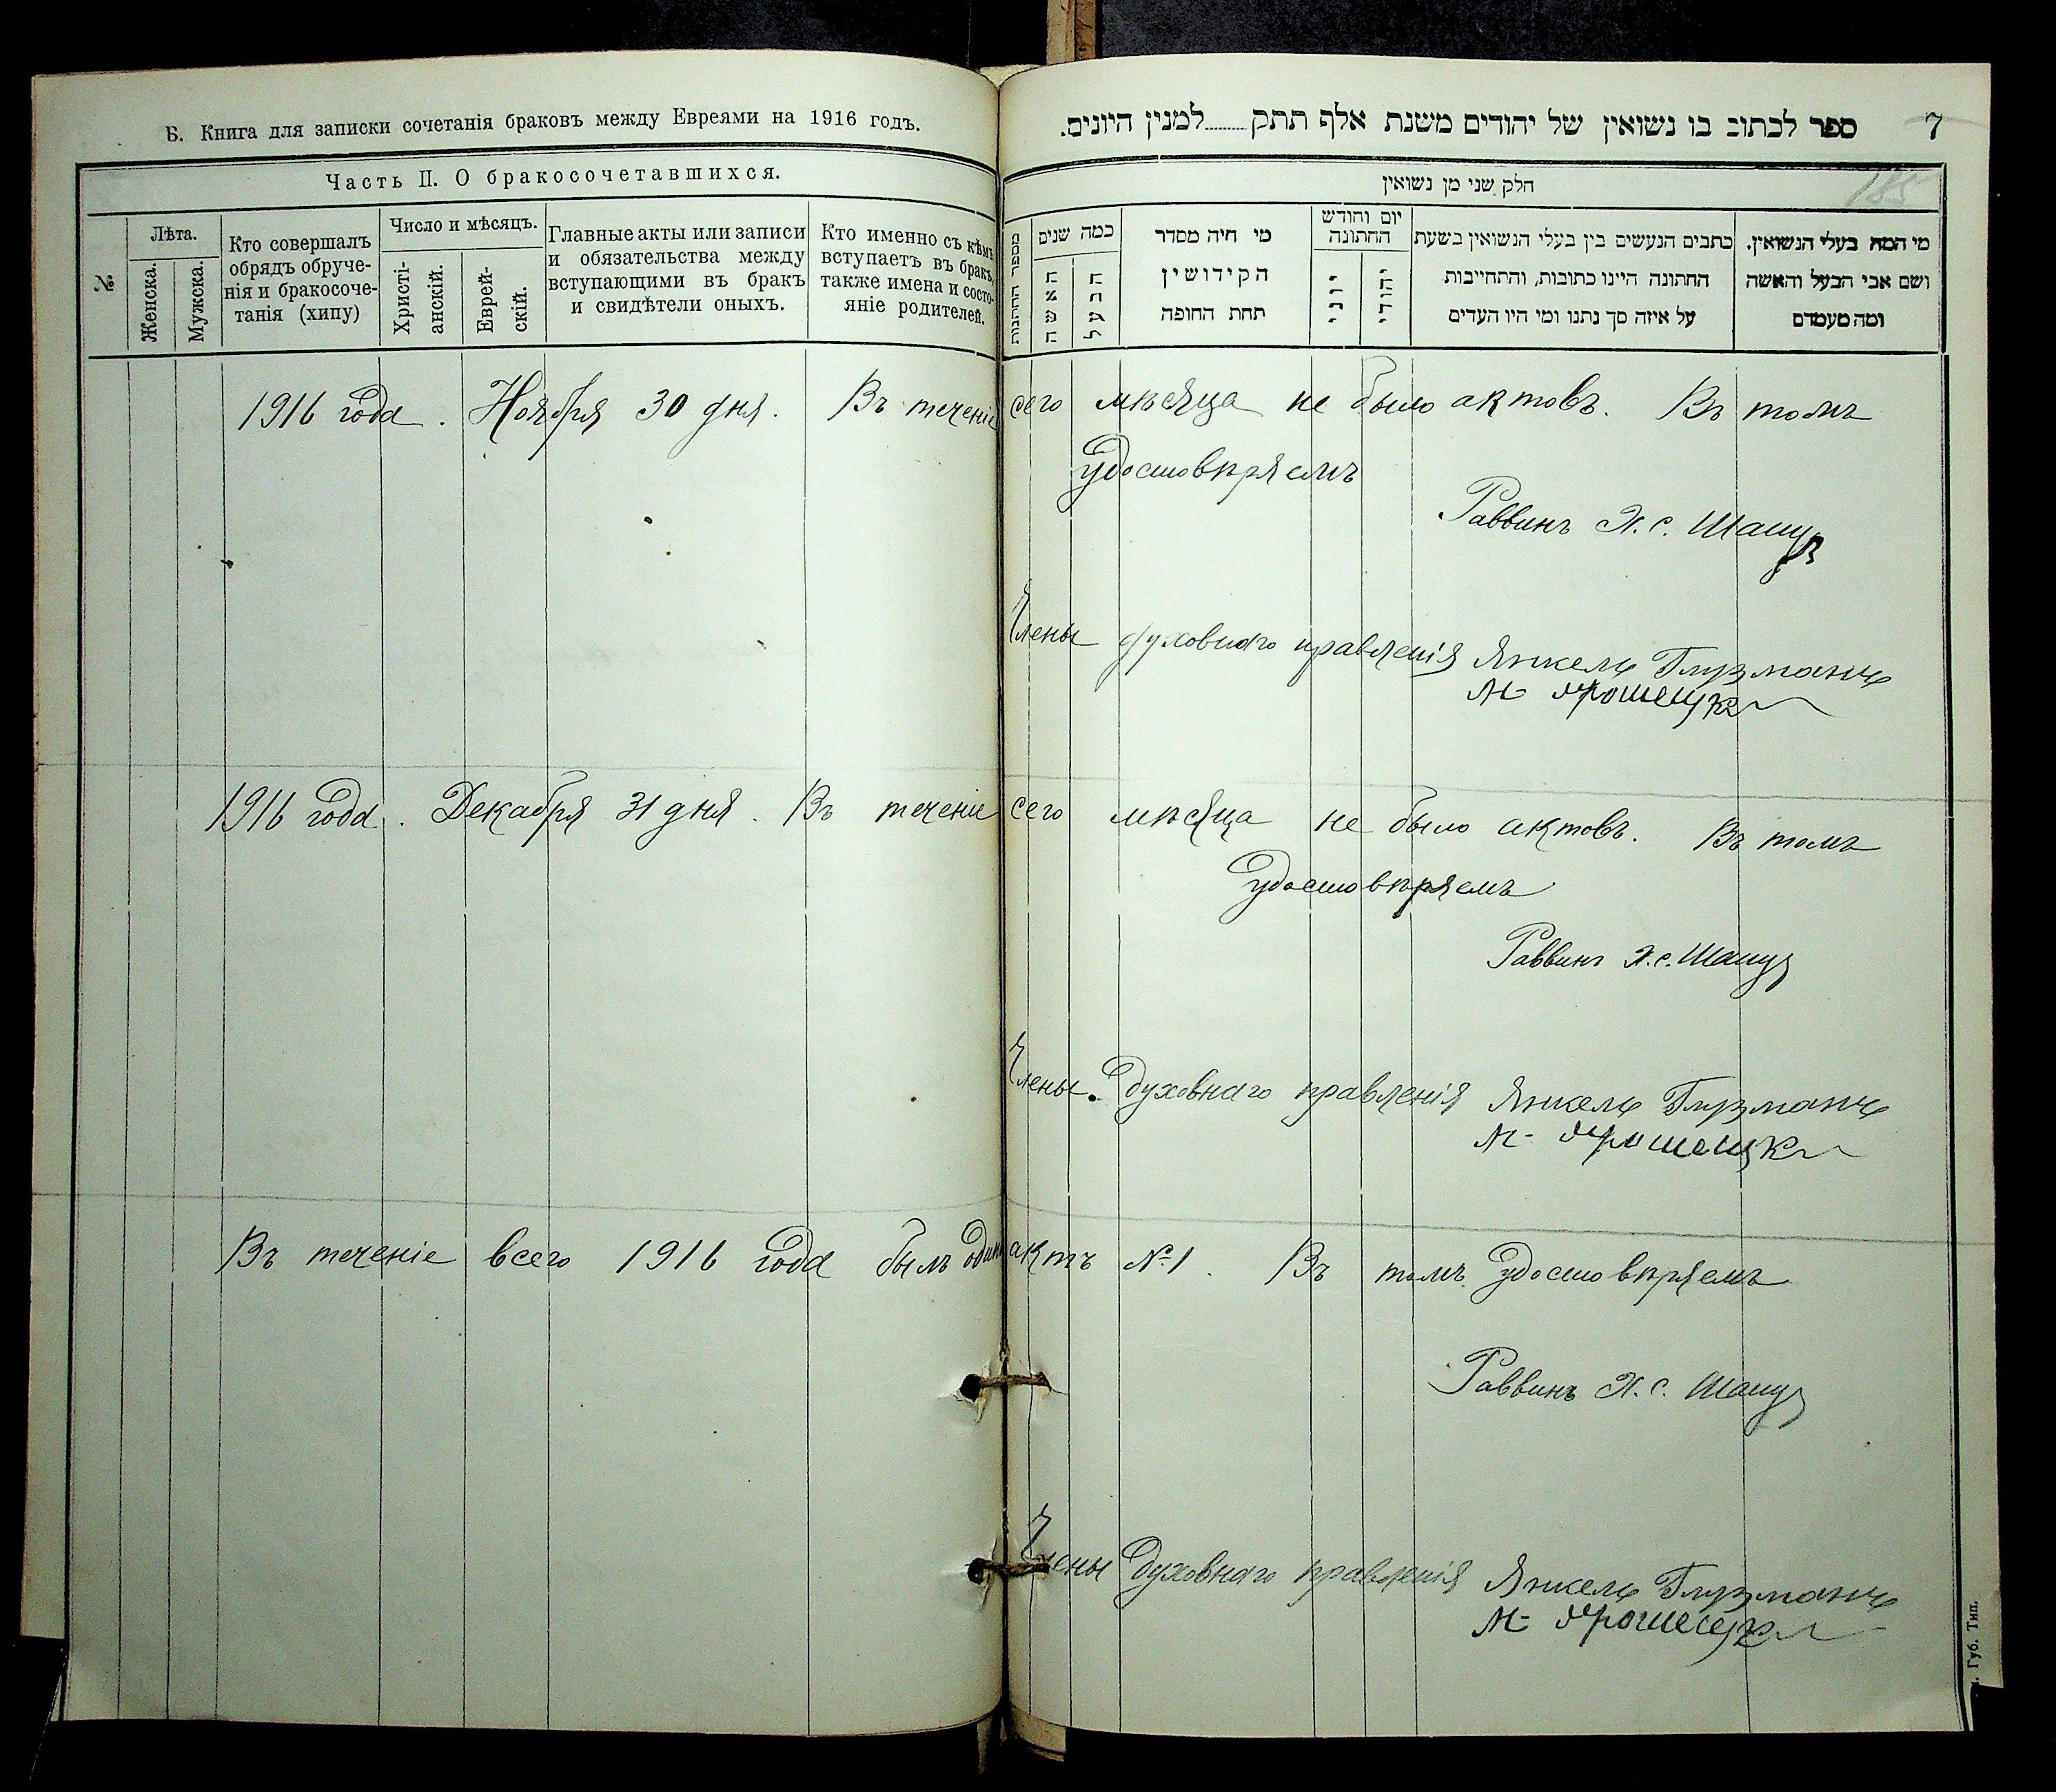 Б. Книга для записки сочетанія браковъ между Евреями на 1916 годъ.
Часть II. О бракосочетавшихся.
№
Лѣта.
Женска.
Мужска.
Кто совершалъ
обрядъ обруче-
нія и бракосоче-
танія (хипу)
Число и мѣсяцъ.
Христі-
анскій.
Еврей-
скій.
Главные акты или записи
и обязательства между
вступающими въ бракъ
и свидѣтели оныхъ.
Кто именно съ кѣмъ
вступаетъ въ бракъ,
также имена и состо-
яніе родителей.
ספר לכתוב בו נשואין של יהודים משנת אלף תתק........למנין היונים.
7
185
חלק שני מן נשואין
מספר החתונות
כמה שנים
האשה
הבעל
מי היה מסדר
הקידושין
תחת החופה
יום וחודש
החתונה
יוני
יהודי
כתבים הנעשים בין בעלי הנשואין בשעת
החתונה היינו כתובות, והתחייבות
על איזה סך נתנו ומי היו העדים
מי המה בעלי הנשואין.
ושם אבי הבעל והאשה
ומה מעמדם
1916 года. Ноября 30 дня. Въ теченіе сего мѣсяца не было актовъ. Въ томъ
удостовѣряемъ
Раввинъ Х. С.
Члены духовнаго правленія Янкель Глузманъ
М
1916 года. Декабря 31 дня. Въ теченіе сего мѣсяца не было актовъ. Въ томъ
удостовѣряемъ
Раввинъ Х. С.
Члены духовнаго правленія Янкель Глузманъ
М
Въ теченіе всего 1916 года былъ одинъ актъ №1. Въ томъ удостовѣряемъ
Раввинъ Х. С.
Члены духовнаго правленія Янкель Глузманъ
М
Губ. Тип.